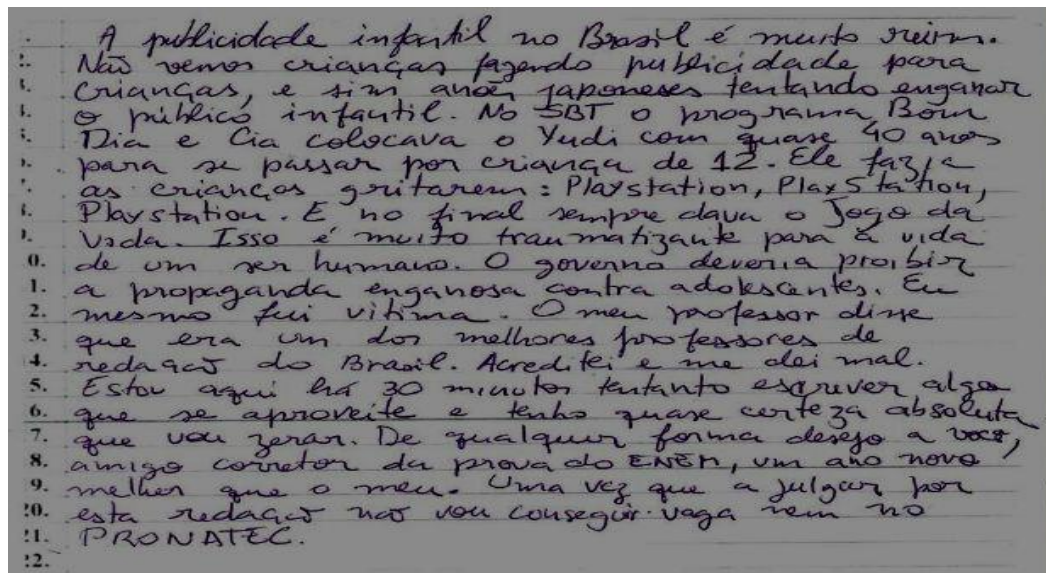 . A publicidade infantil no Brasil é muito reim.
2. Não vemos crianças fazendo publicidade para
3. crianças, e sim anões japoneses tentando enganar
4. o público infantil. No SBT o programa Bom
5. Dia e Cia colocava o Yudi com quase 40 anos
6. para se passar por criança de 12. Ele fazia
7. as crianças gritarem: Playstation, Playstation,
8. Playstation. E no final sempre dava o Jogo da
9. Vida. Isso é muito traumatizante para a vida
10. de um ser humano. O governo deveria proibir
11. a propaganda enganosa contra adolescentes. Eu
12. mesmo fui vítima. O meu professor disse
13. que era um dos melhores professores de
14. redação do Brasil. Acreditei e me dei mal.
15. Estou aqui há 30 minutos tentanto escrever algo
16. que se aproveite e tenho quase certeza absoluta
17. que vou zerar. De qualquer forma desejo a você,
18. amigo corretor da prova do ENEM, um ano novo
19. melhor que o meu. Uma vez que a julgar por
20. esta redação não vou conseguir vaga nem no
21. PRONATEC.
22.